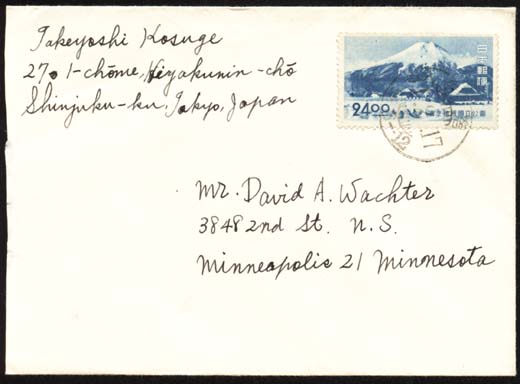 Takeyoshi Kosuge
270 1-chōme, Hiyakunin-chō
Shinjuku-ku, Tokyo, Japan
日本郵便
24.00
17
Mr. David A. Wachter
3848 2nd St. N. S.
Minneapolis 21 Minnesota